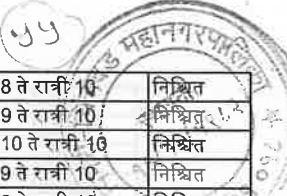 yy
महानगरपालिका
8 ते रात्री 10 निश्चित
9 ते रात्री 10 निश्चित
10 ते रात्री 10 निश्चित
9 ते रात्री 10 निश्चित